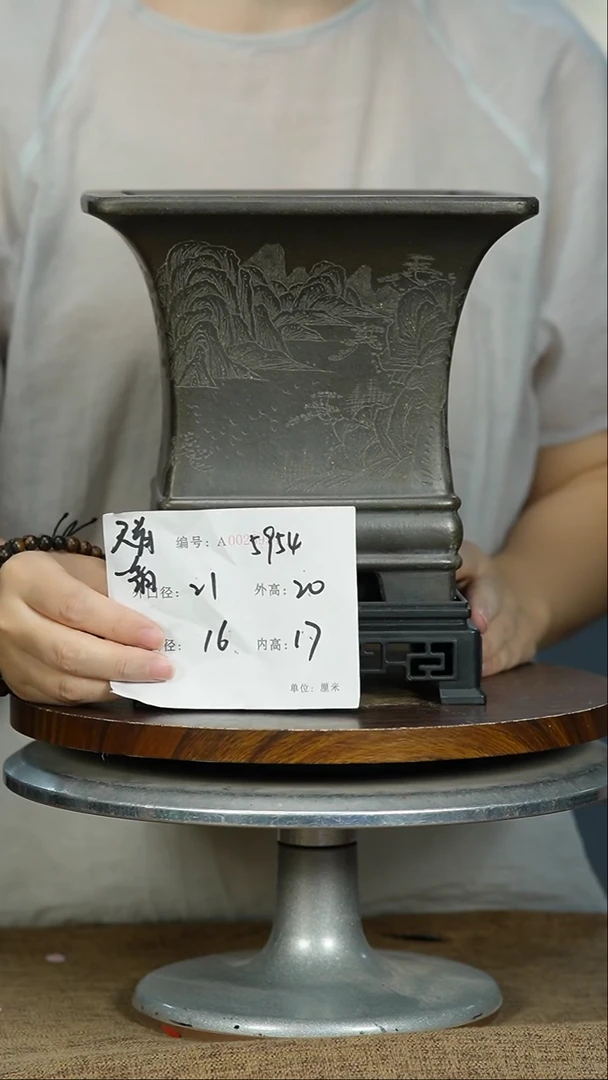 编号：A002 5954
外口径：21 外高：20
径：16 内高：17
单位：厘米